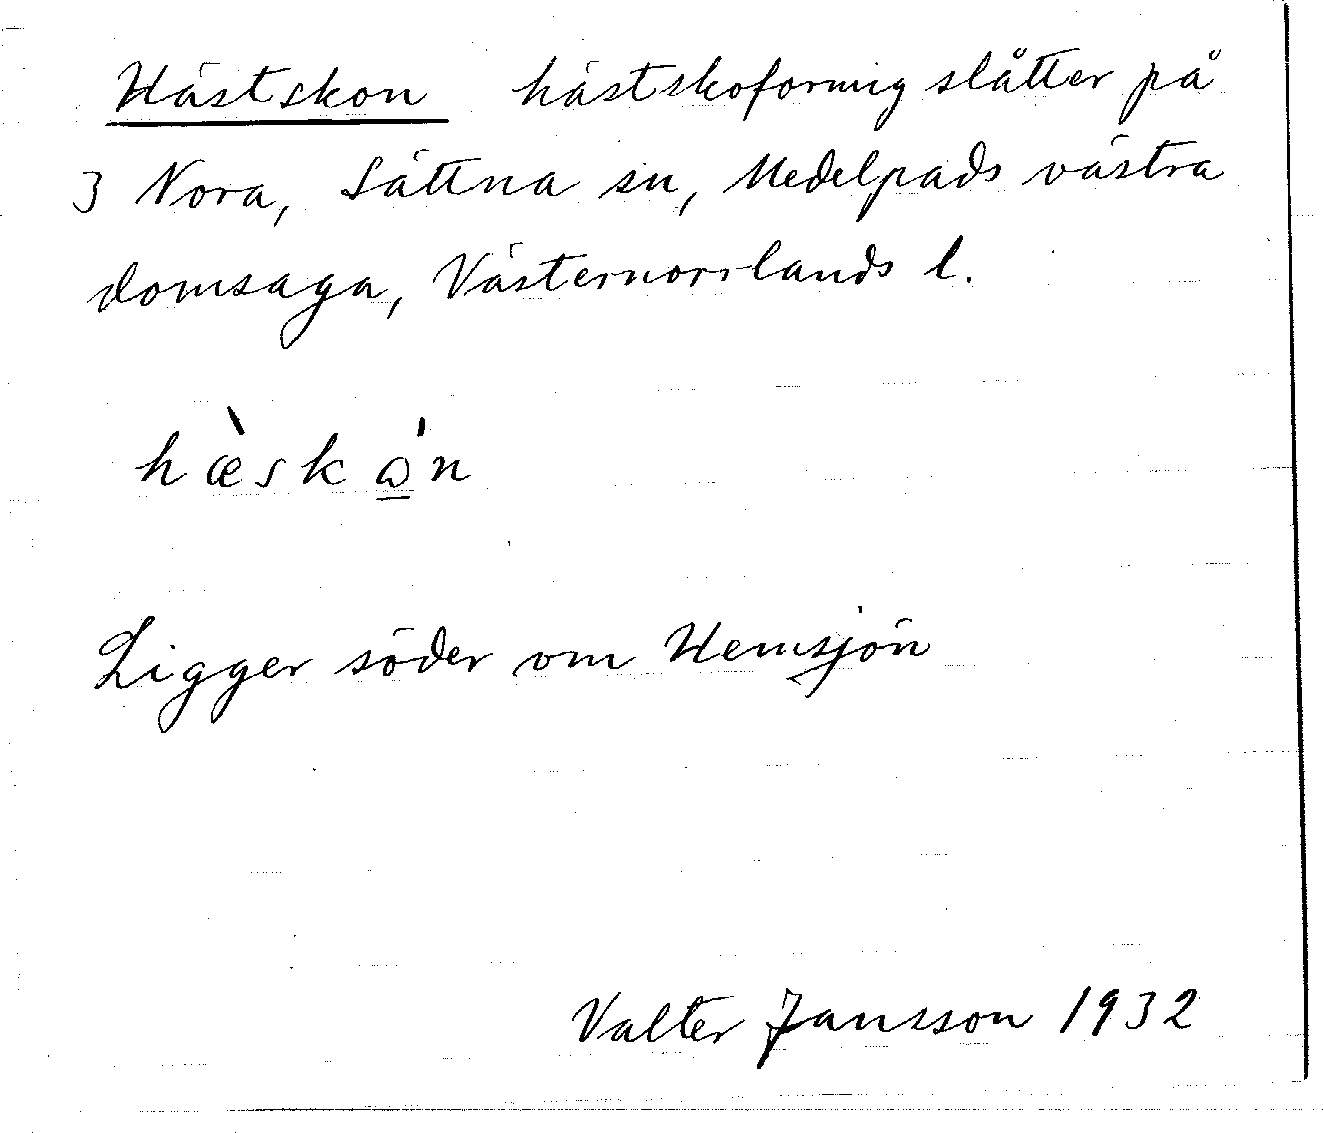 Hästskon hästskoformig slåtter på
3 Nora, Sättna sn, Medelpads västra
domsaga, Västernorrlands l.
hæ̀skǫ̀n
Ligger söder om Hemsjön
Valter Jansson 1932